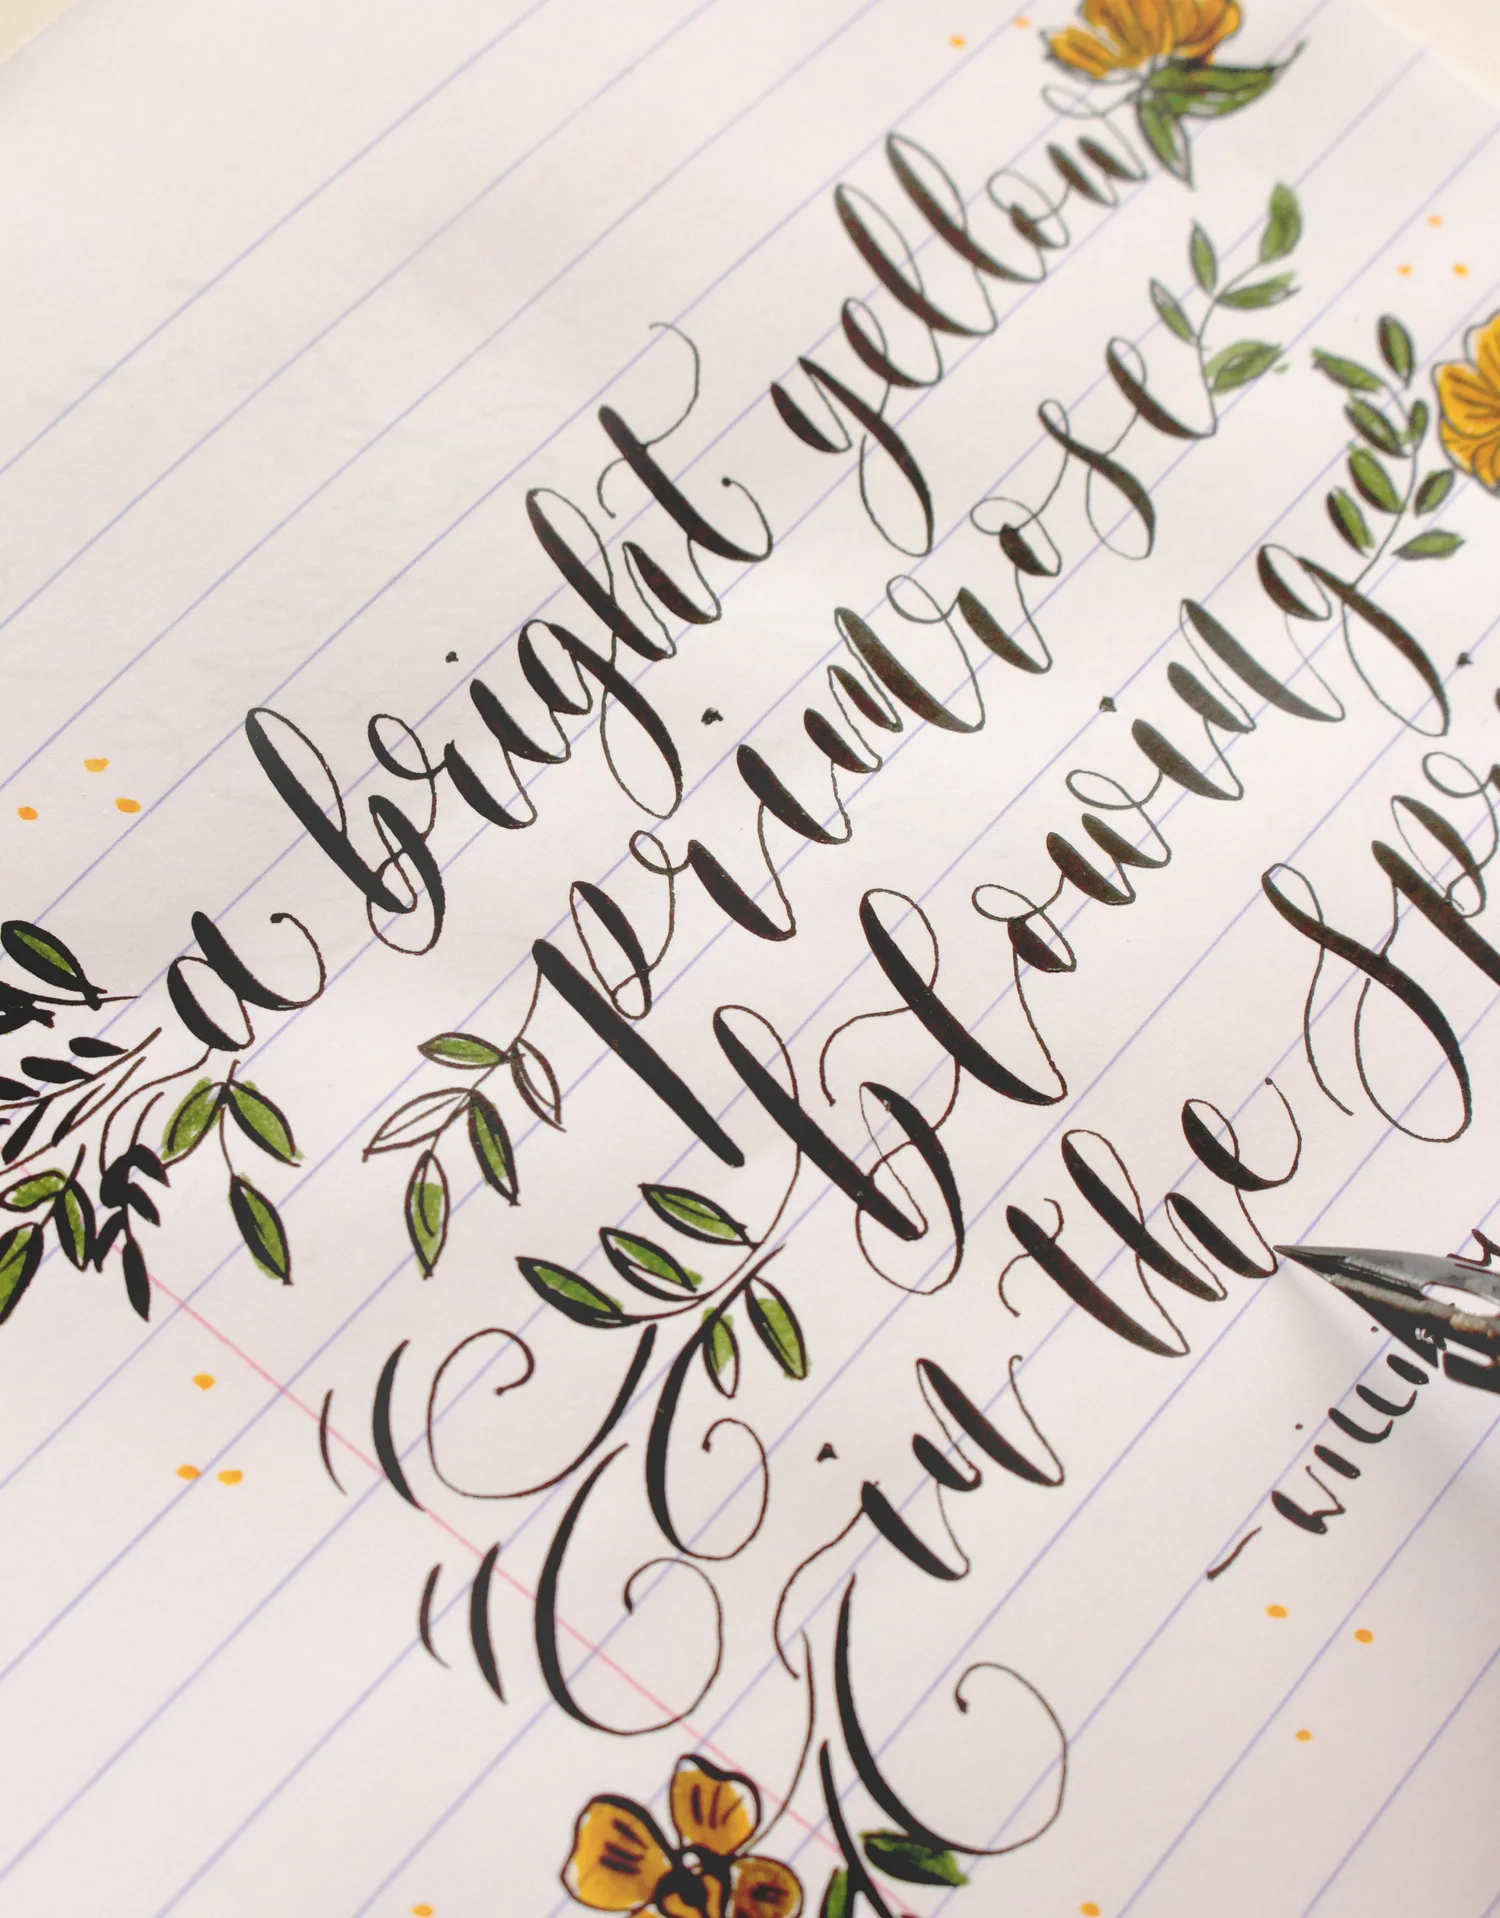 a bright yellow
primrose
blowing
in the